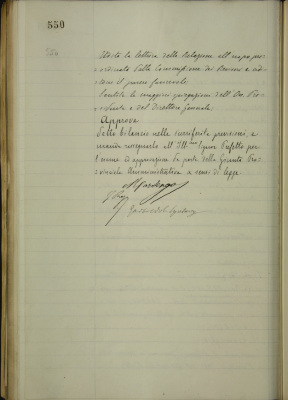 550
550
Udita la lettura della Relazione all'uopo pre-
sentata dalla Commissione di Revisione e ed
il parere favorevole.
Sentite le maggiori spiegazioni dell'On. Pre-
sidente e del Direttore Generale
Approva
Detto bilancio nelle surriferite previsioni, e
manda rassegnarlo all'Ill.mo Signor Prefetto per
l'esame ed approvazione da parte della Giunta Pro-
vinciale Amministrativa a sensi di legge.